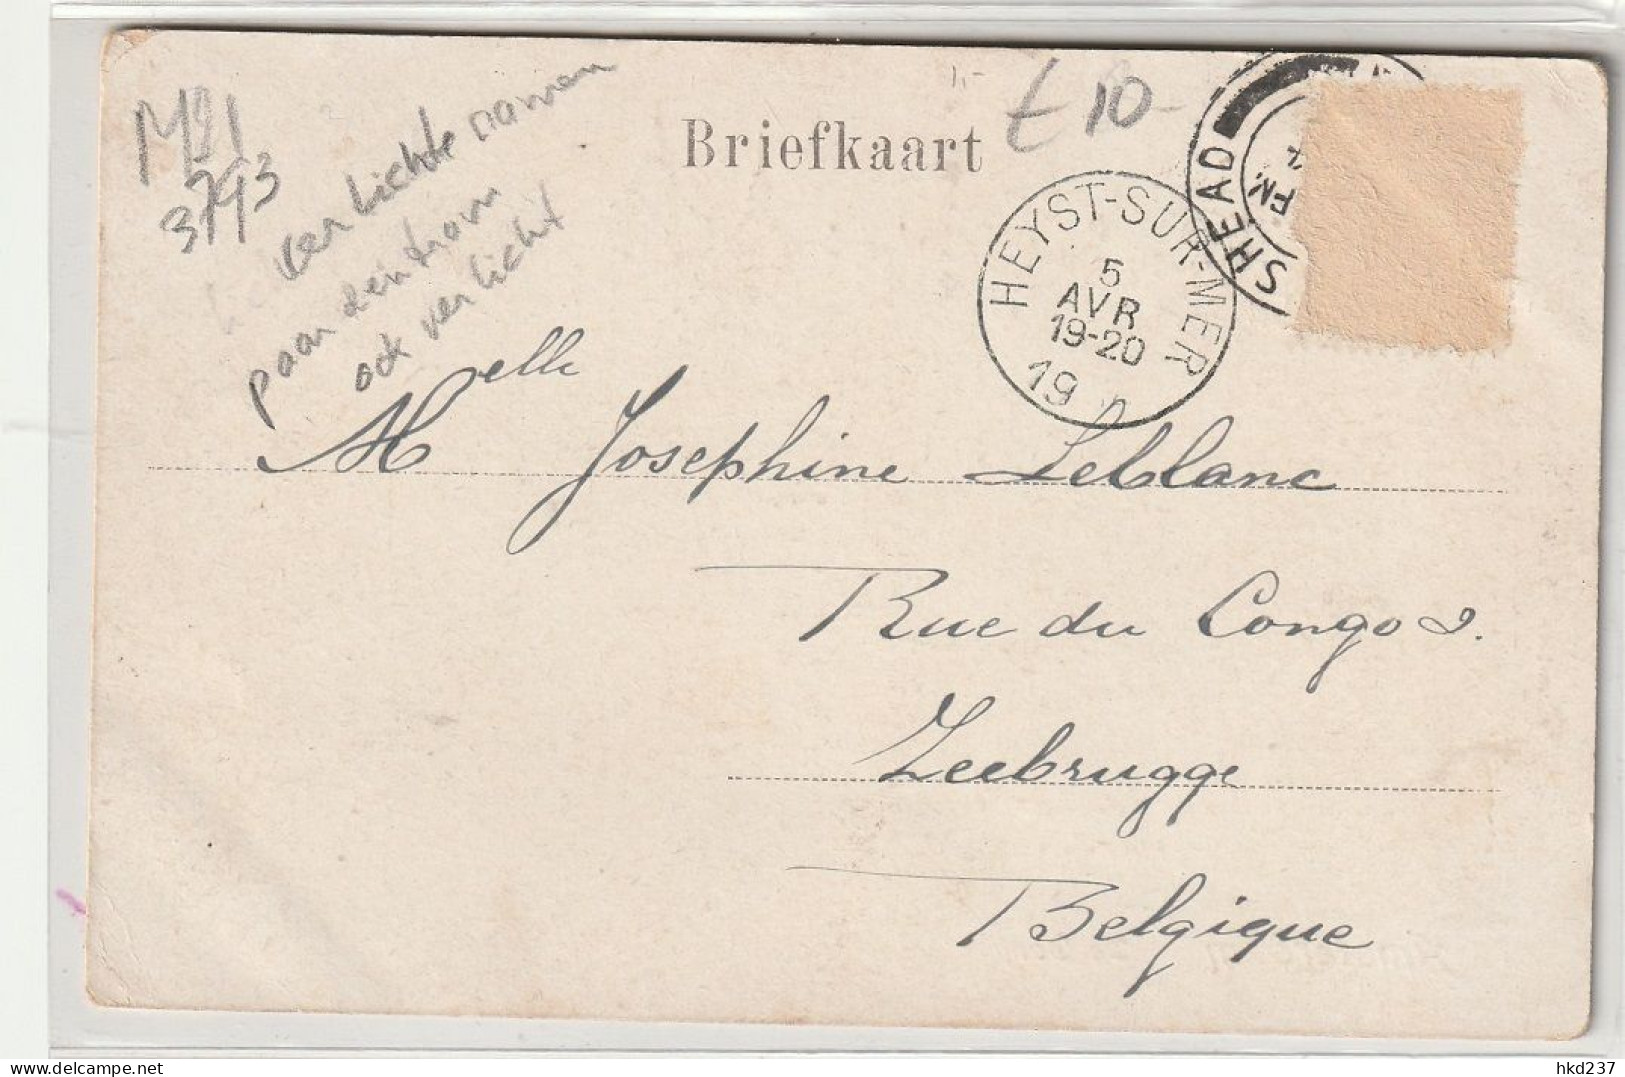 M81
3793
verlichte namen
paardentram
ook verlicht
Briefkaart
1,-
£ 10-
SHEAD
FM
HEYST-SUR-MER
5
AVR
19-20
19
Melle Josephine Leblanc
Rue du Congo 2.
Zeebrugge
Belgique
hkd237